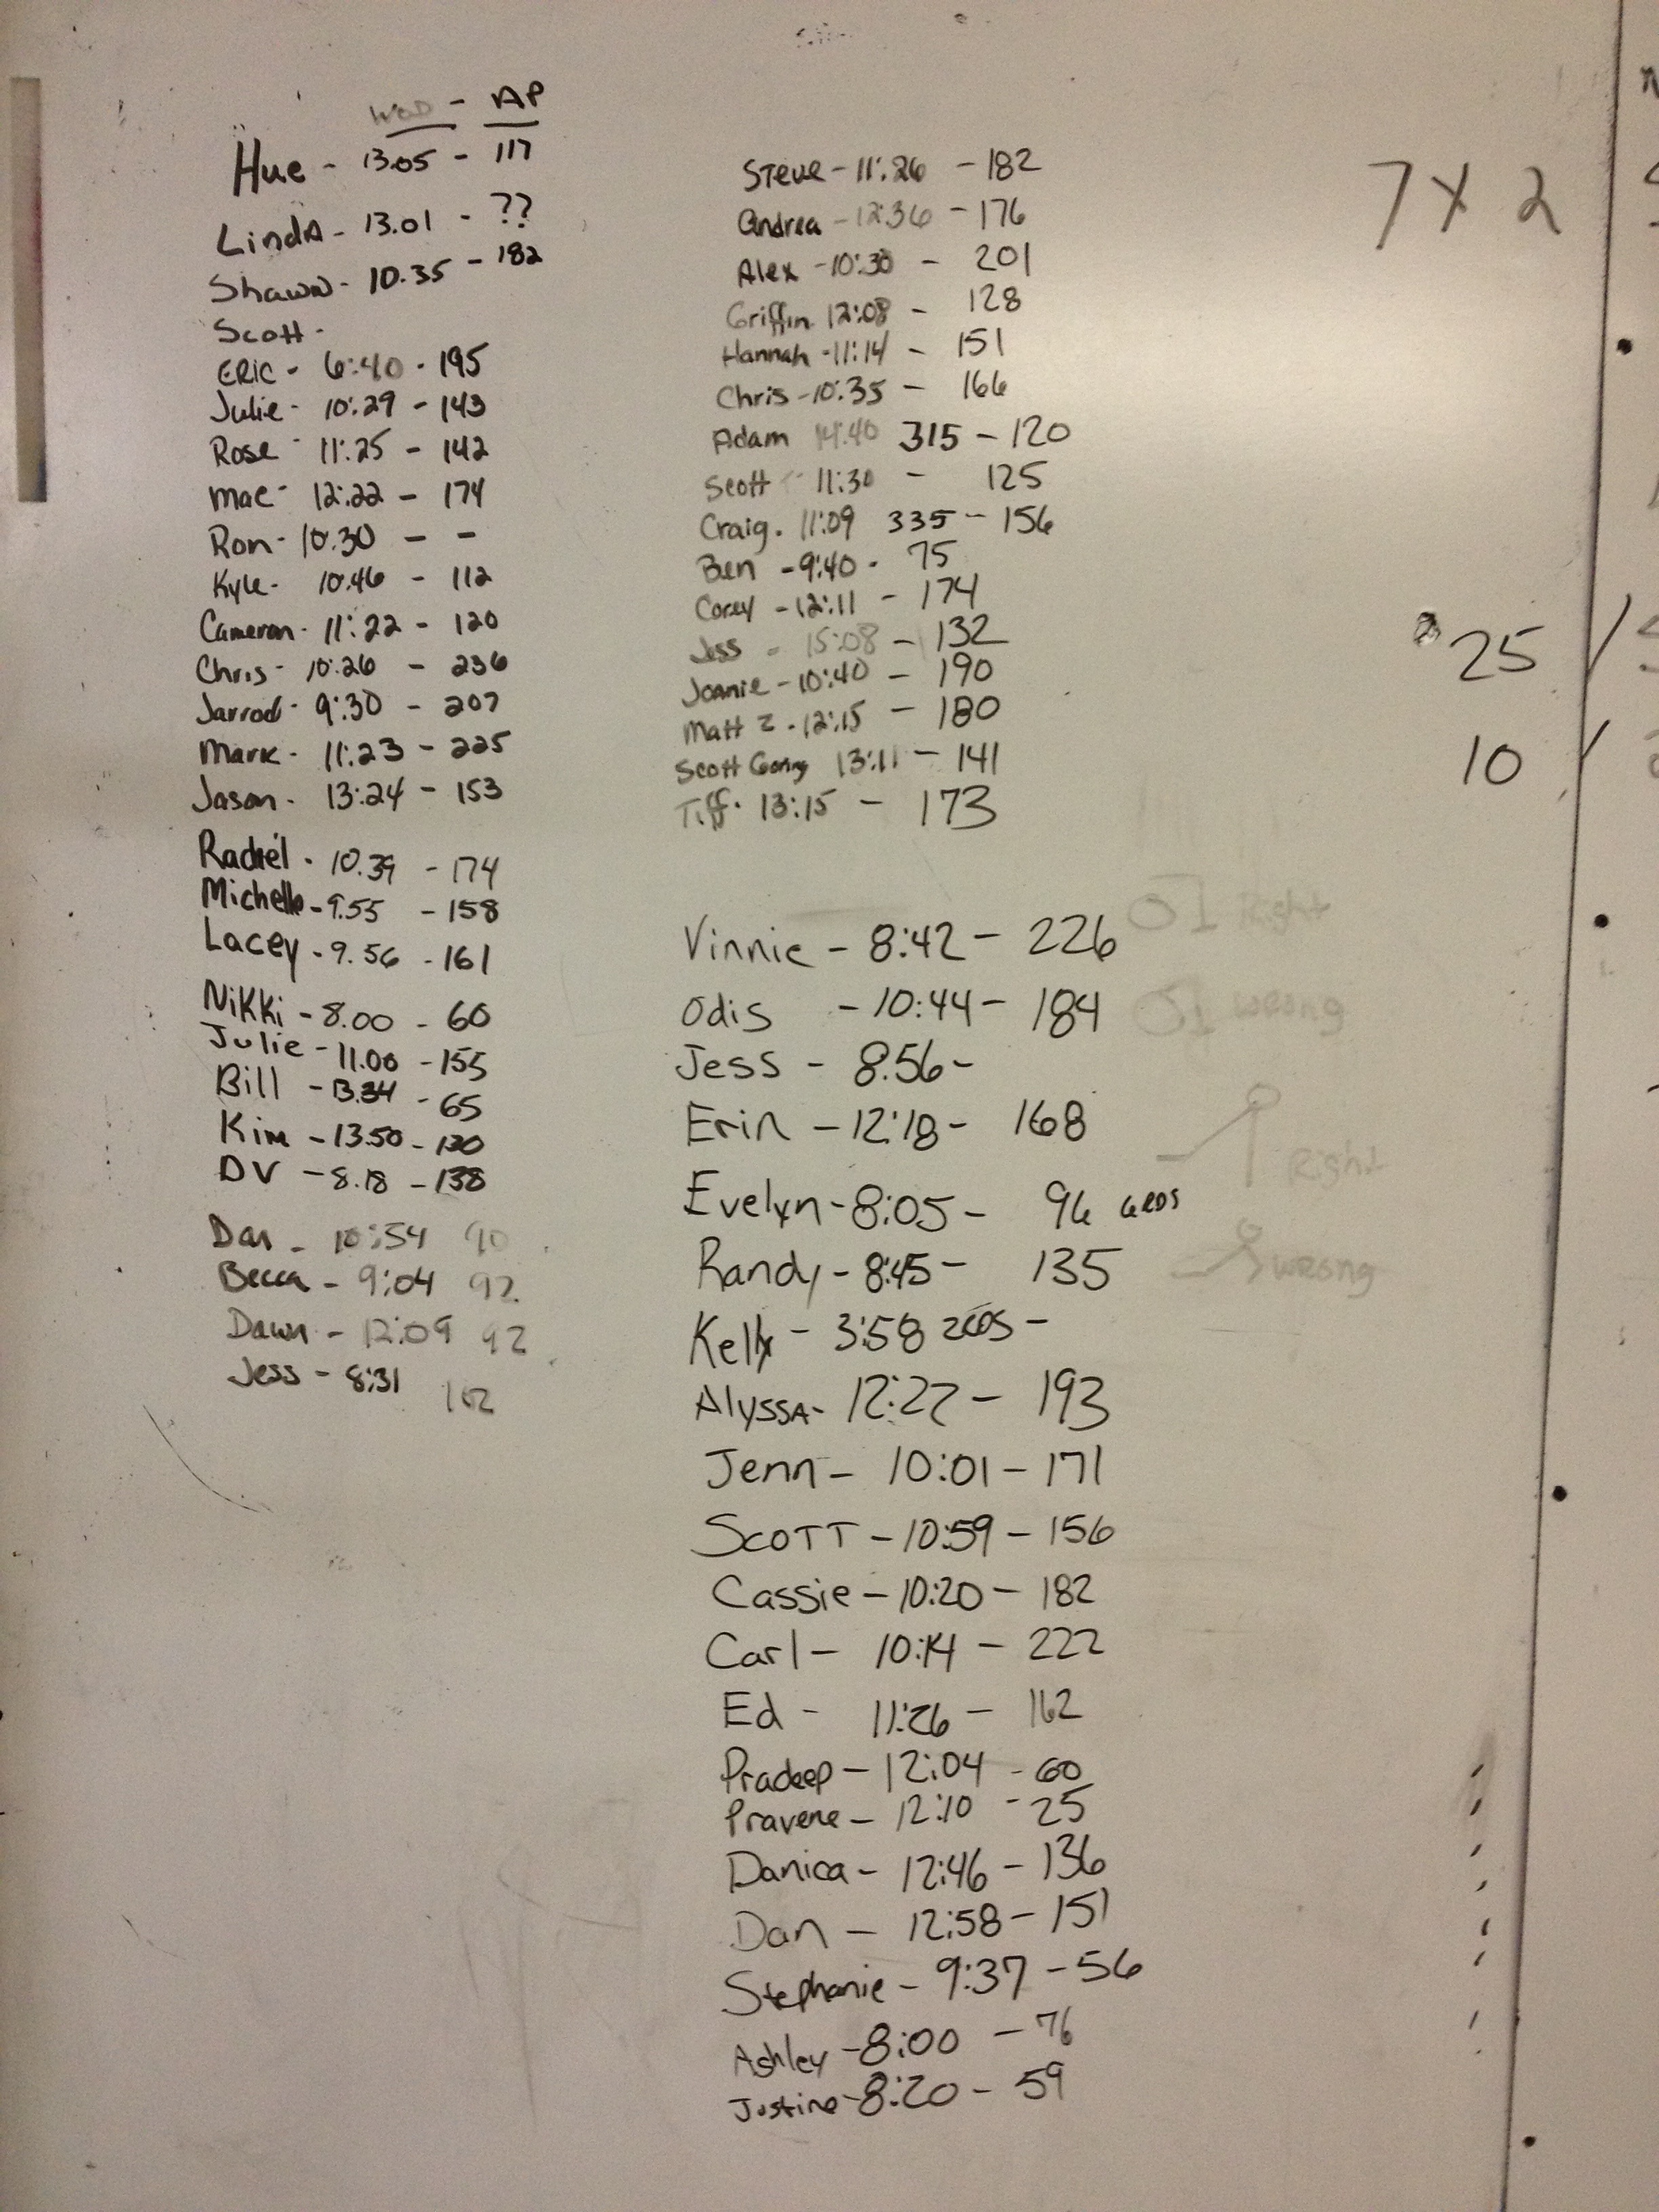 WOD - AP
Hue - 13.05 - 117
LindA - 13.01 - ??
Shawn - 10.35 - 182
Scott -
ERIC - 6:40 - 195
Julie - 10:29 - 143
Rose - 11:25 - 142
Mac - 12:22 - 174
Ron - 10:30 - -
Kyle - 10:46 - 112
Cameron - 11:22 - 120
Chris - 10:26 - 236
Jarrod - 9:30 - 207
Mark - 11:23 - 225
Jason - 13:24 - 153
Rachel - 10.39 - 174
Michelle - 9.55 - 158
Lacey - 9.56 - 161
Nikki - 8.00 - 60
Julie - 11.00 - 155
Bill - 13.34 - 65
Kim - 13.50 - 130
DV - 8.18 - 138
Dan - 10:54 90
Becca - 9:04 92
Dawn - 12:09 92
Jess - 8:31 162
Steve - 11:26 - 182
Andrea - 12:36 - 176
Alex - 10:30 - 201
Griffin 12:08 - 128
Hannah - 11:14 - 151
Chris - 10:35 - 166
Adam 14:40 315 - 120
Scott - 11:30 - 125
Craig - 11:09 335 - 156
Ben - 9:40 - 75
Corey - 12:11 - 174
Jess - 15:08 - 132
Joanie - 10:40 - 190
Matt Z - 12:15 - 180
Scott 13:11 - 141
Tiff - 13:15 - 173
Vinnie - 8:42 - 226
Odis - 10:44 - 184
Jess - 8:56 -
Erin - 12:18 - 168
Evelyn - 8:05 - 96 6RDS
Randy - 8:45 - 135
Kelly - 3:58 2RDS -
Alyssa - 12:22 - 193
Jenn - 10:01 - 171
Scott - 10:59 - 156
Cassie - 10:20 - 182
Carl - 10:14 - 222
Ed - 11:26 - 162
Pradeep - 12:04 - 60
Pravene - 12:10 - 25
Danica - 12:46 - 136
Dan - 12:58 - 151
Stephanie - 9:37 - 56
Ashley - 8:00 - 76
Justine - 8:20 - 59
Right
wrong
Right
wrong
7 x 2
25 /
10 /